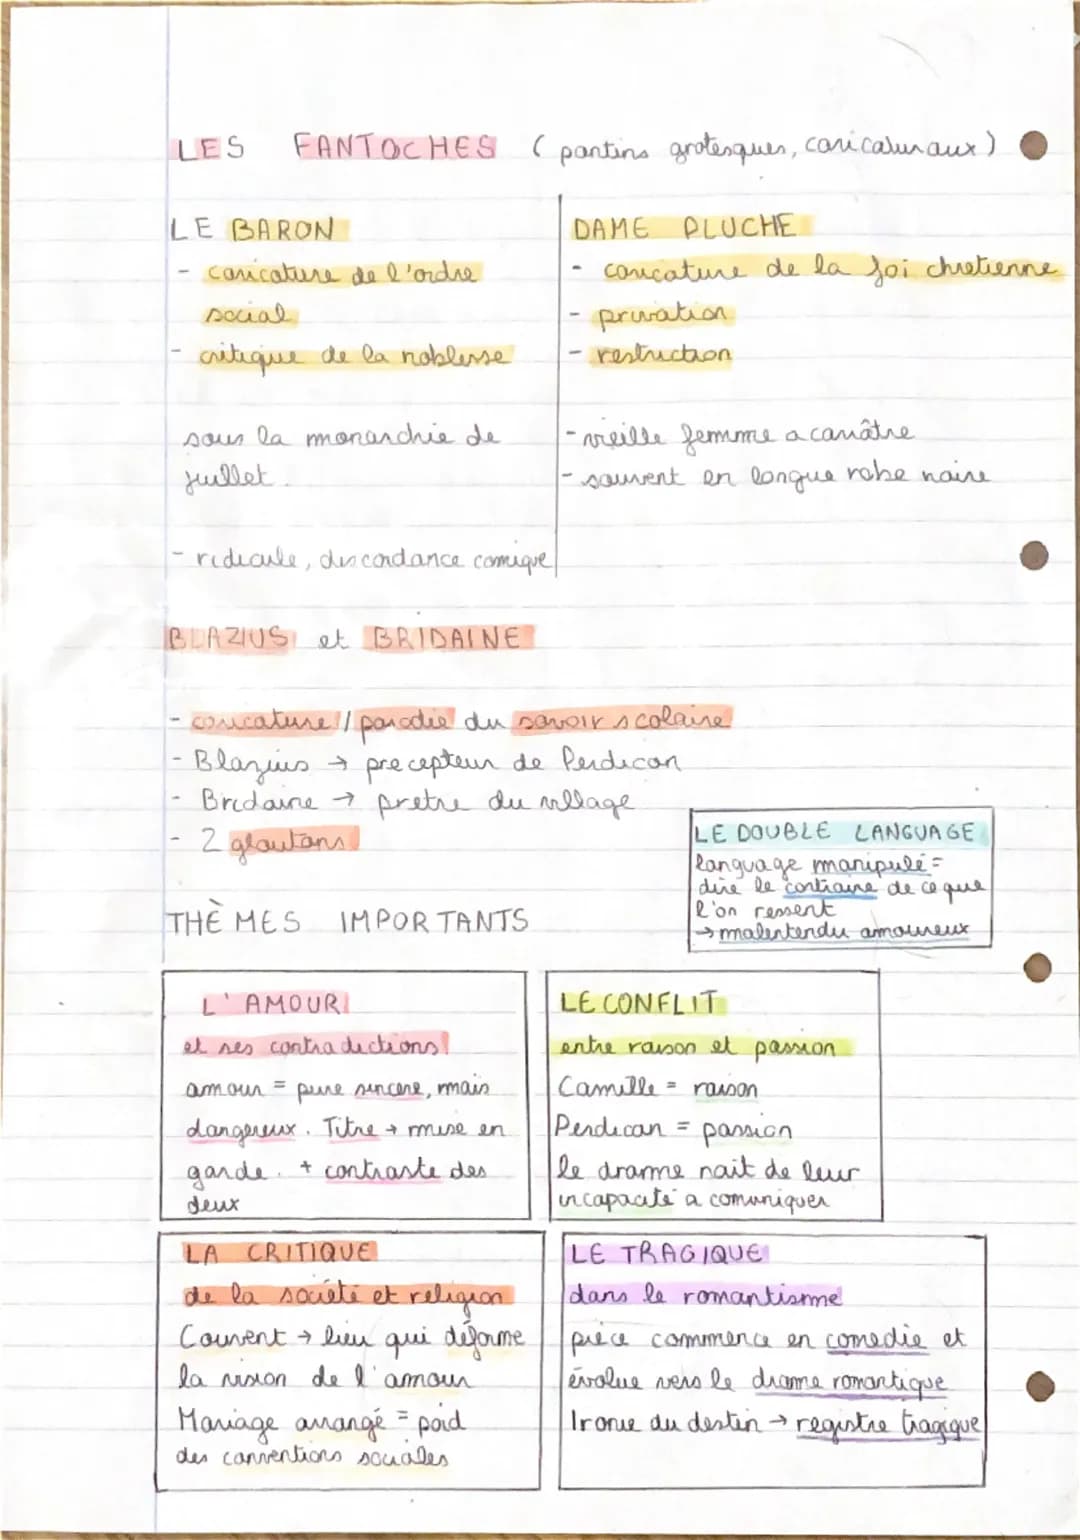 LES FANTOCHES ( pantins grotesques, caricaturaux )
LE BARON
- caricature de l'ordre
social
- critique de la noblesse
sous la monarchie de
juillet.
- ridicule, discordance comique
DAME PLUCHE
- caricature de la foi chretienne
- privation
- restriction
- vieille femme acariâtre
- souvent en longue robe noire
BLAZIUS et BRIDAINE
- caricature / parodie du savoir scolaire
- Blazius → precepteur de Perdican
- Bridaine → pretre du village
- 2 gloutons
LE DOUBLE LANGUAGE
language manipulé =
dire le contraire de ce que
l'on ressent
→ malentendu amoureux
THÈMES IMPORTANTS
L'AMOUR
et ses contradictions
amour = pure sincere, mais
dangereux. Titre → mise en
garde. + contraste des
deux
LE CONFLIT
entre raison et passion
Camille = raison
Perdican = passion
le drame nait de leur
incapacité a comuniquer
LA CRITIQUE
de la société et religion
Couvent → lieu qui déforme
la vision de l'amour
Mariage arrangé = poid
des conventions sociales
LE TRAGIQUE
dans le romantisme
pièce commence en comedie et
évolue vers le drame romantique
Ironie du destin → registre tragique